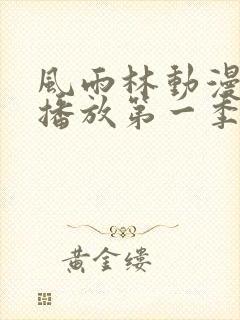 風雨林動漫
播放第一季
黄金缕